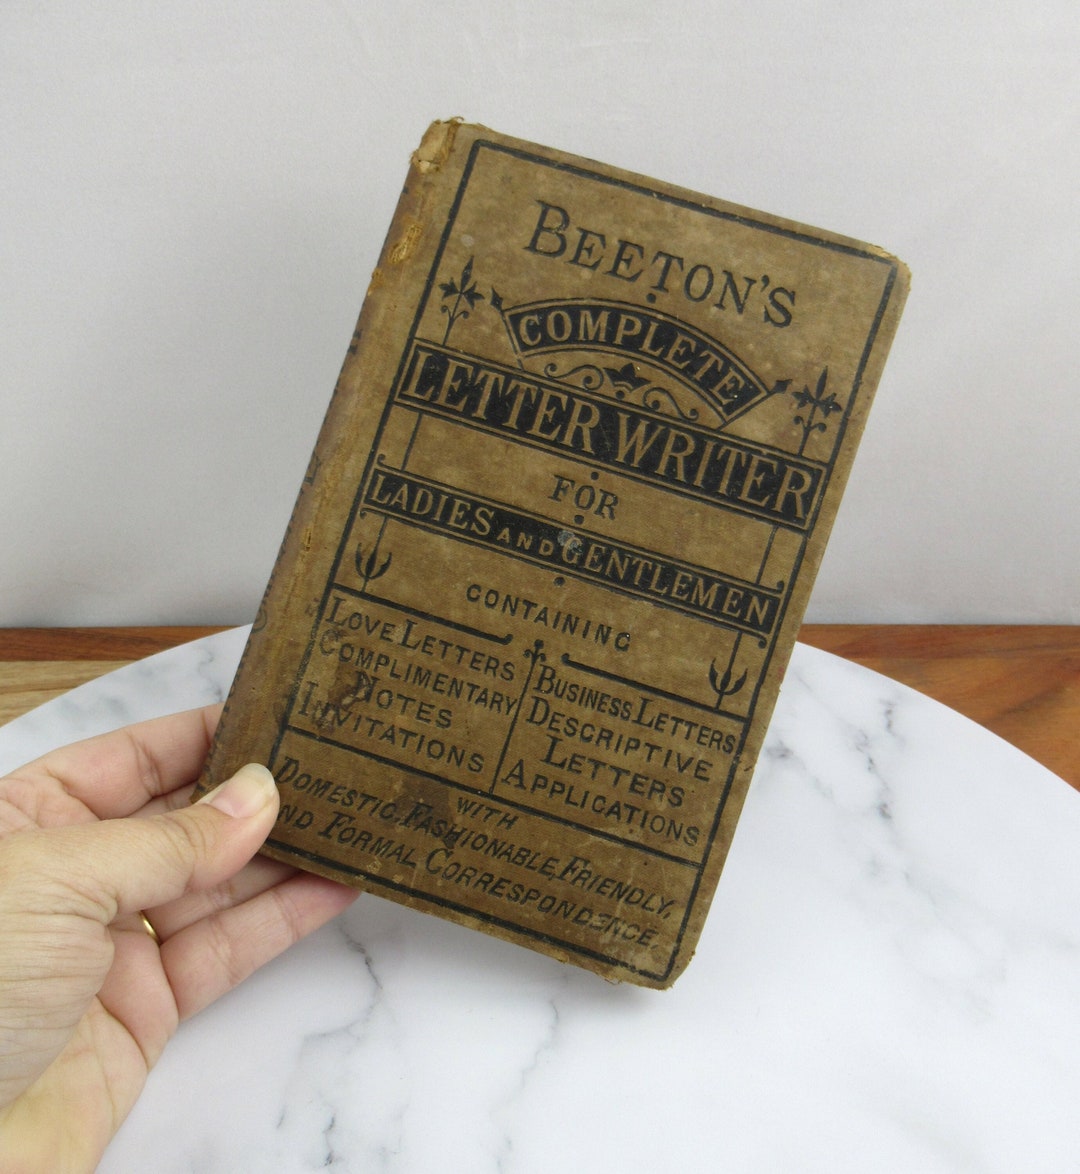 BEETON'S
COMPLETE
LETTER WRITER
FOR
LADIES AND GENTLEMEN
CONTAINING
LOVE LETTERS
COMPLIMENTARY
NOTES
INVITATIONS
BUSINESS LETTERS
DESCRIPTIVE
LETTERS
APPLICATIONS
WITH
DOMESTIC, FASHIONABLE, FRIENDLY,
AND FORMAL CORRESPONDENCE.